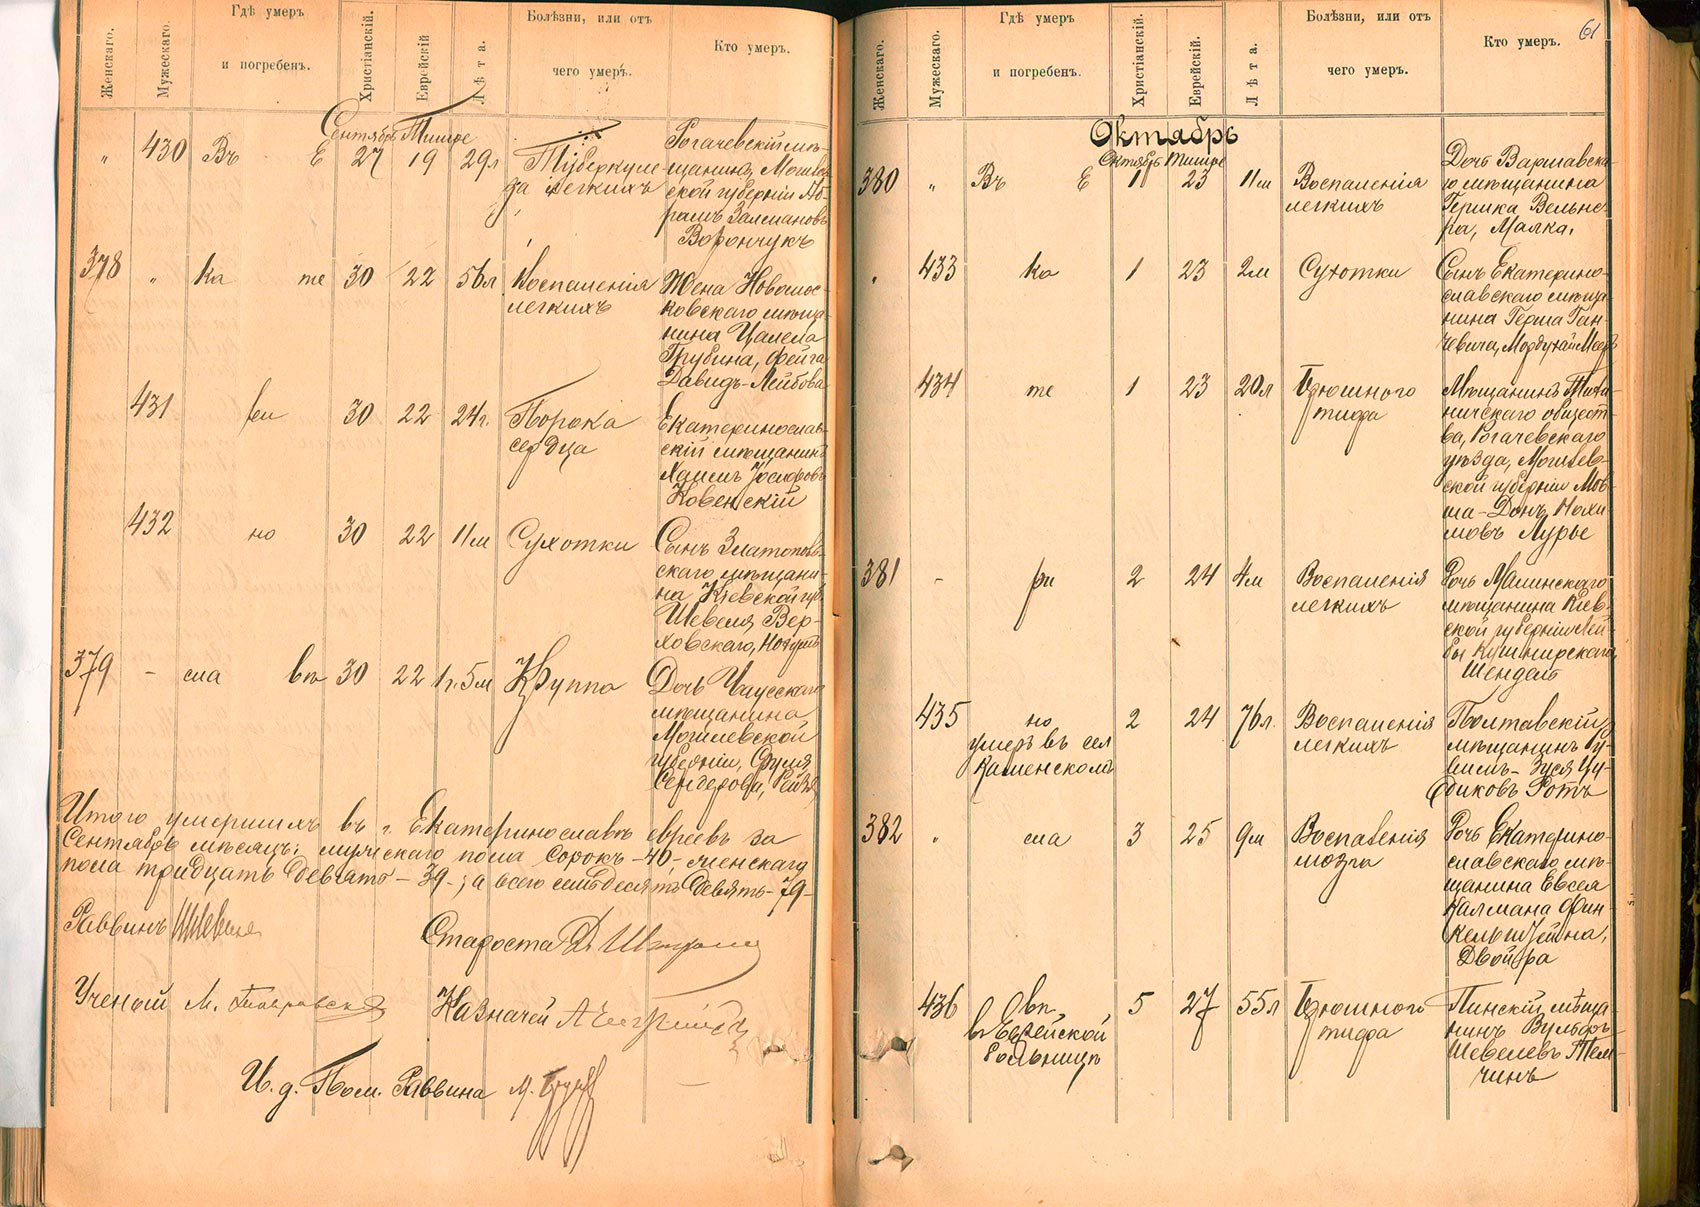 Женскаго.
Мужескаго.
Гдѣ умеръ
и погребенъ.
Христіанскій.
Еврейскій
Лѣта.
Болѣзни, или отъ
чего умеръ.
Кто умеръ.
Сентябрь Тишре
" 430 Въ Е 27 19 29л
Туберкуле
за легкихъ
Рогачевскій мѣ-
щанинъ Могилев
ской губерніи Аб-
рамъ Залмановъ
Ворончукъ
378 " ка те 30 22 56л
Воспаленія
легкихъ
Жена Новомос-
ковскаго мѣща-
нина Цалела
Грубина, Фейга
Давидъ-Лейбова
431 ри 30 22 24г.
Порока
сердца
Екатеринослав-
скій мѣщанинъ
Хаимъ Іосифовъ
Ковенскій
432 но 30 22 11м
Сухотки
Сынъ Златополь-
скаго мѣщани-
на Кіевской губ.
Шевеля Вер-
ховскаго,
379 - сла въ 30 22 1г. 5м
Круппа
Дочь Чаусскаго
мѣщанина
Могилевской
губерніи,
Сендерова,
Итого умершихъ въ г. Екатеринославѣ евреевъ за
Сентябрь мѣсяцъ: мужескаго пола сорокъ -40-, женскаго
пола тридцать девять - 39 -; а всего семьдесятъ девять -79-
Раввинъ
Староста
Ученый М.
Казначей
И. д. Пом. Раввина М.
61
Женскаго.
Мужескаго.
Гдѣ умеръ
и погребенъ.
Христіанскій.
Еврейскій.
Лѣта.
Болѣзни, или отъ
чего умеръ.
Кто умеръ.
Октябрь
Октябрь Тишре
380 " Въ Е 1 23 11м
Воспаленія
легкихъ
Дочь Варшавска-
го мѣщанина
Гершка Вельне-
ра, Малка.
" 433 ка 1 23 2м
Сухотки
Сынъ Екатерино-
славскаго мѣща-
нина Герша Ган-
чевича, Мордухай Меер
434 те 1 23 20л
Брюшного
тифа
Мѣщанинъ Тиха-
ничскаго общест-
ва, Рогачевскаго
уѣзда, Могилев-
ской губерніи Мов-
ша-Донъ Нохи-
мовъ Лурье
381 - ри 2 24 4м
Воспаленія
легкихъ
Дочь Малинскаго
мѣщанина Кіев-
ской губерніи Лей-
бы Кушнирскаго
Шендель
435 но 2 24 76л.
умеръ въ сел
Каменскомъ
Воспаленія
легкихъ
Полтавскій
мѣщанинъ
Зуся Цу-
диковъ Ротъ
382 " сла 3 25 9м
Воспаленія
мозга
Дочь Екатерино-
славскаго мѣ-
щанина Евсея
Калмана Фин-
кельштейна,
Двойра
436 въ 5 27 55л
въ Еврейской
больницѣ
Брюшного
тифа
Пинскій мѣща-
нинъ Вульфъ
Шевелевъ Тем-
чинъ